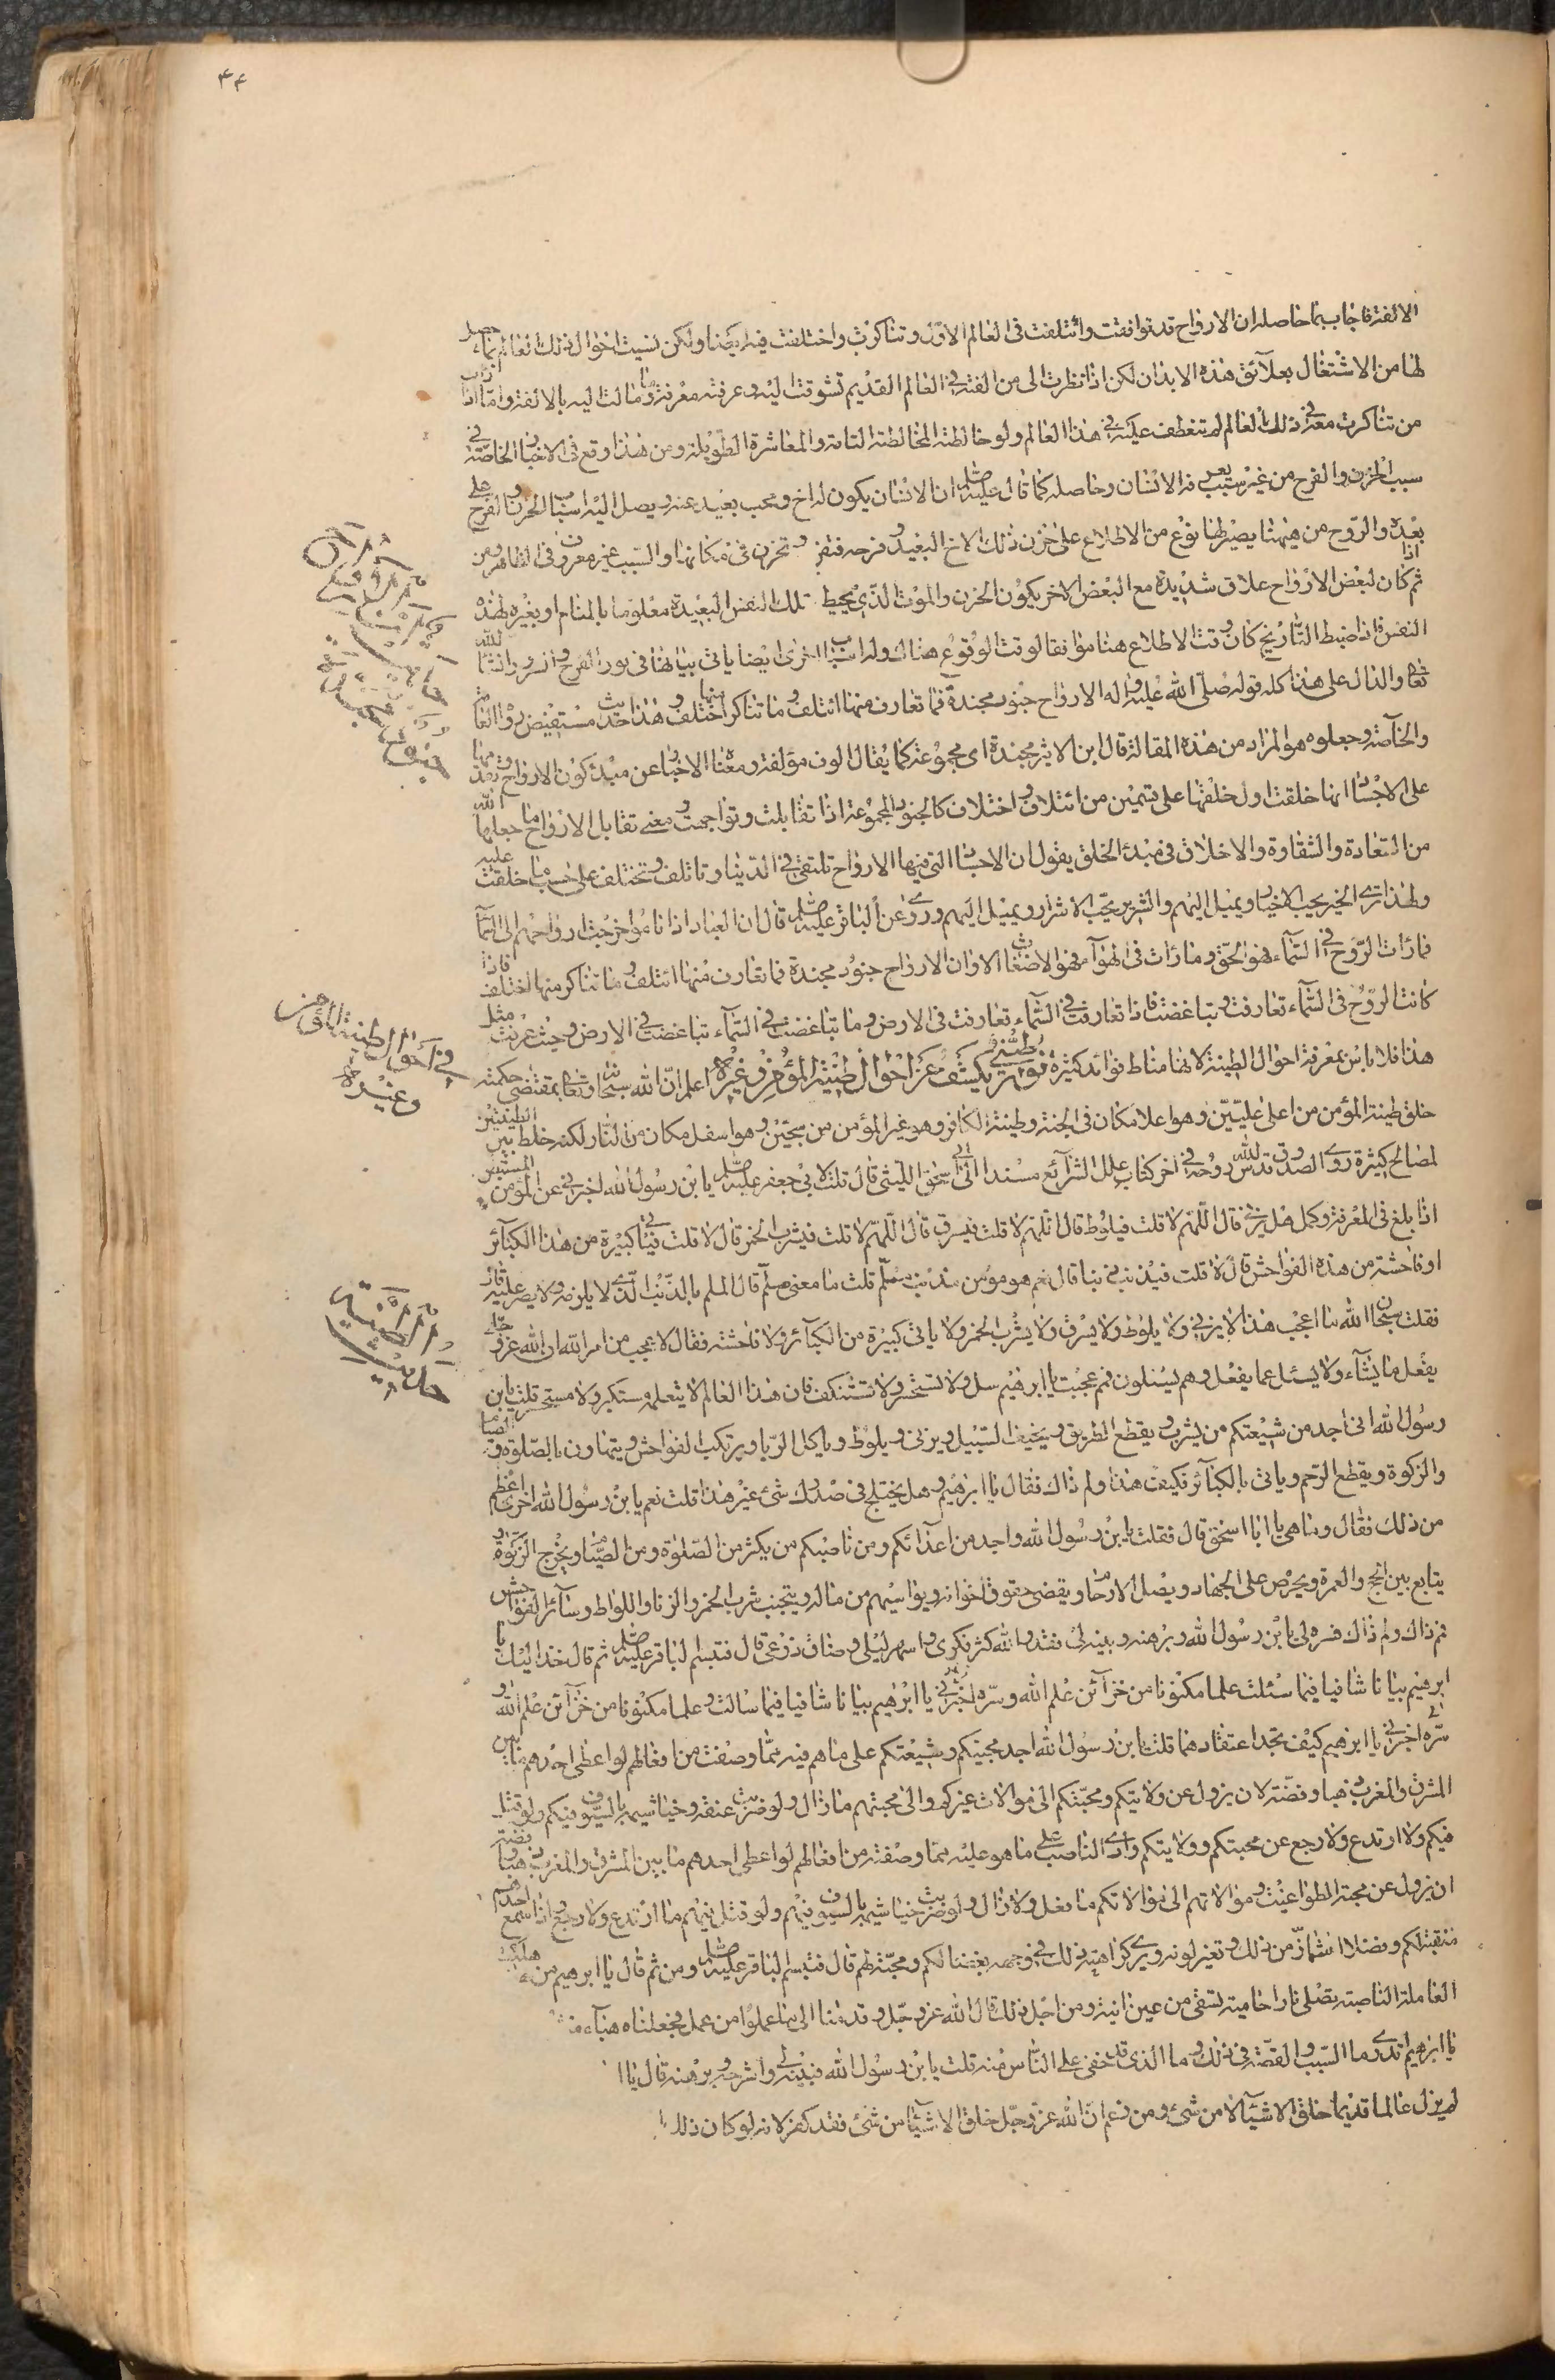 ٤٤
الالفة فاجاب بما حاصله ان الارواح قد توافقت وائتلفت فى العالم الاول وتناكرت واختلفت فيه ايضا ولكن نسيت احوال ذلك العالم بما حصل
لها من الاشتغال بعلائق هذه الابدان لكن اذا نظرت الى من الفته فى العالم القديم تشوقت اليه وعرفته معرفة ما ومالت اليه بالالفة واما اذا رات
من تناكرت معه فى ذلك العالم لم تتعطف عليه فى هذا العالم ولو خالطته المخالطة التامة والمعاشرة الطويلة ومن هذا وقع فى الاخبار الخاصة فى
سبب الحزن والفرح من غير سبب يعرفه الانسان وحاصله كما قال عليه السلام ان الانسان يكون له اخ ومحب بعيد عنه ويصل اليه اسباب الحزن والفرح على
بعده والروح من هيهنا يصير لها نوع من الاطلاع على حزن ذلك الاخ البعيد وفرحه فتفرح وتحزن فى مكانها والسبب غير معروف فى الظاهر ومن
ثم اذا كان لبعض الارواح علاقة شديدة مع البعض الاخر يكون الحزن والموت الذى يحيط تلك النفس البعيدة معلوما بالمنام او بغيره لهذه
النفس فاذا ضبط التاريخ كان وقت الاطلاع هنا موافقا لوقت الوقوع هناك وله اسباب اخرى ايضا ياتى بيانها فى نور الفرح والسرور انشاء الله
تعالى والدال على هذا كله قوله صلى الله عليه واله الارواح جنود مجندة فما تعارف منها ائتلف وما تناكر منها اختلف وهذا حديث مستفيض رواه العامة
والخاصة وجعلوه هو المراد من هذه المقالة قال ابن الاثير مجندة اى مجموعة كما يقال الوف مؤلفة ومعناه الاخبار عن مبدء كون الارواح وتقدمها
على الاجساد انها خلقت اول خلقها على قسمين من ائتلاف واختلاف كالجنود المجموعة اذا تقابلت وتواجهت ومعنى تقابل الارواح ما جعلها الله
من السعادة والشقاوة والاخلاق فى مبدء الخلق يقول ان الاجساد التى فيها الارواح تلتقى فى الدنيا وتاتلف وتختلف على حسب ما خلقت عليه
ولهذا ترى الخير يحب الاخيار ويميل اليهم والشرير يحب الاشرار ويميل اليهم وروى عن الباقر عليه السلام قال ان العباد اذا ناموا خرجت ارواحهم الى السماء
فما رات الروح فى السماء فهو الحق وما رات فى الهواء فهو الاضغاث الا وان الارواح جنود مجندة فما تعارف منها ائتلف وما تناكر منها اختلف فاذا
كانت الروح فى السماء تعارفت وتباغضت فاذا تعارفت فى السماء تعارفت فى الارض وما تباغضت فى السماء تباغضت فى الارض وحيث عرفت مثل
هذا فلا باس بمعرفة احوال الطينة لانها مناط فوائد كثيرة نور طينى يكشف عن احوال طينة المؤمن وغيره اعلم ان الله سبحانه وتعالى بمقتضى حكمته
خلق طينة المؤمن من اعلى عليين وهو اعلا مكان فى الجنة وطينة الكافر وهو غير المؤمن من سجين وهو اسفل مكان من النار لكنه خلط بين الطينتين
لمصالح كثيرة روى الصدوق قدس الله روحه فى اخر كتاب علل الشرائع مسندا الى ابى اسحق الليثى قال قلت لابى جعفر عليه السلام يا بن رسول الله اخبرنى عن المؤمن المستبصر
اذا بلغ فى المعرفة وكمل هل يزنى قال اللهم لا قلت فيلوط قال اللهم لا قلت فيسرق قال اللهم لا قلت فيشرب الخمر قال لا قلت فياتى كبيرة من هذه الكبائر
او فاحشة من هذه الفواحش قال لا قلت فيذنب ذنبا قال نعم هو مؤمن مذنب مسلم قلت ما معنى مسلم قال المسلم بالذنب الذى لا يلزمه ولا يصر عليه قال
فقلت سبحان الله ما اعجب هذا لا يزنى ولا يلوط ولا يسرق ولا يشرب الخمر ولا ياتى كبيرة من الكبائر ولا فاحشة فقال لا عجب من امر الله ان الله عز وجل
يفعل ما يشاء ولا يسئل عما يفعل وهم يسئلون فمم عجبت يا ابرهيم سل ولا تستحسر ولا تستنكف فان هذا العالم لا يتعلمه مستكبر ولا مستحسر قلت يا بن
رسول الله انى اجد من شيعتكم من يشرب ويقطع الطريق ويخيف السبيل ويزنى ويلوط وياكل الربا ويرتكب الفواحش ويتهاون بالصلوة والصيام
والزكوة ويقطع الرحم وياتى بالكبائر فكيف هذا ولم ذاك فقال يا ابرهيم وهل يختلج فى صدرك شئ غير هذا قلت نعم يا بن رسول الله اخرى اعظم
من ذلك فقال وما هى يا ابا اسحق قال فقلت يا بن رسول الله واجد من اعدائكم ومن ناصبكم من يكثر من الصلوة ومن الصيام ويخرج الزكوة و
يتابع بين الحج والعمرة ويحرص على الجهاد ويصل الارحام ويقضى حقوق اخوانه ويواسيهم من ماله ويتجنب شرب الخمر والزنا واللواط وسائر الفواحش
فمم ذاك ولم ذاك فسره لى يا بن رسول الله وبرهنه وبينه لى فقد والله كثر فكرى واسهر ليلى وضاق ذرعى قال فتبسم الباقر عليه السلام ثم قال خذ اليك يا
ابرهيم بيانا شافيا فيما سئلت علما مكنونا من خزائن علم الله وسره اخبرنى يا ابرهيم بيانا شافيا فيما سالت وعلما مكنونا من خزائن علم الله و
سره اخبرنى يا ابرهيم كيف تجد اعتقادهما قلت يا بن رسول الله اجد محبيكم وشيعتكم على ما هم فيه مما وصفت من افعالهم لو اعطى احدهم ما بين
المشرق والمغرب ذهبا وفضة لان يزول عن ولايتكم ومحبتكم الى موالات غيركم والى محبتهم ما زال ولو ضربت عنقه وخياشيمه بالسيوف فيكم ولو قتل
فيكم ولا ارتدع ولا رجع عن محبتكم وولايتكم وارى الناصب على ما هو عليه مما وصفته من افعالهم لو اعطى احدهم ما بين المشرق والمغرب ذهبا وفضة
ان يزول عن محبة الطواغيت وموالاتهم الى موالاتكم ما فعل ولا زال ولو ضربت خياشيمه بالسيوف فيهم ولو قتل فيهم ما ارتدع ولا رجع واذا سمع احدهم
منقبة لكم وفضلا اشماز من ذلك وتغير لونه ويرى كراهية ذلك فى وجهه بغضا لكم ومحبة لهم قال فتبسم الباقر عليه السلام ومن ثم قال يا ابرهيم من هيهنا هلكت
العاملة الناصبة تصلى نارا حامية تسقى من عين انية ومن اجل ذلك قال الله عز وجل وقدمنا الى ما عملوا من عمل فجعلناه هباء
يا ابرهيم اتدرى ما السبب والقصة فى ذلك وما الذى قد خفى على الناس منه قلت يا بن رسول الله فبينه لى واشرحه وبرهنه قال يا ا
لم يزل عالما قديما خلق الاشياء لا من شئ ومن زعم ان الله عز وجل خلق الاشياء من شئ فقد كفر لانه لو كان ذلك
فى احوال طينة المؤمن
وغيره